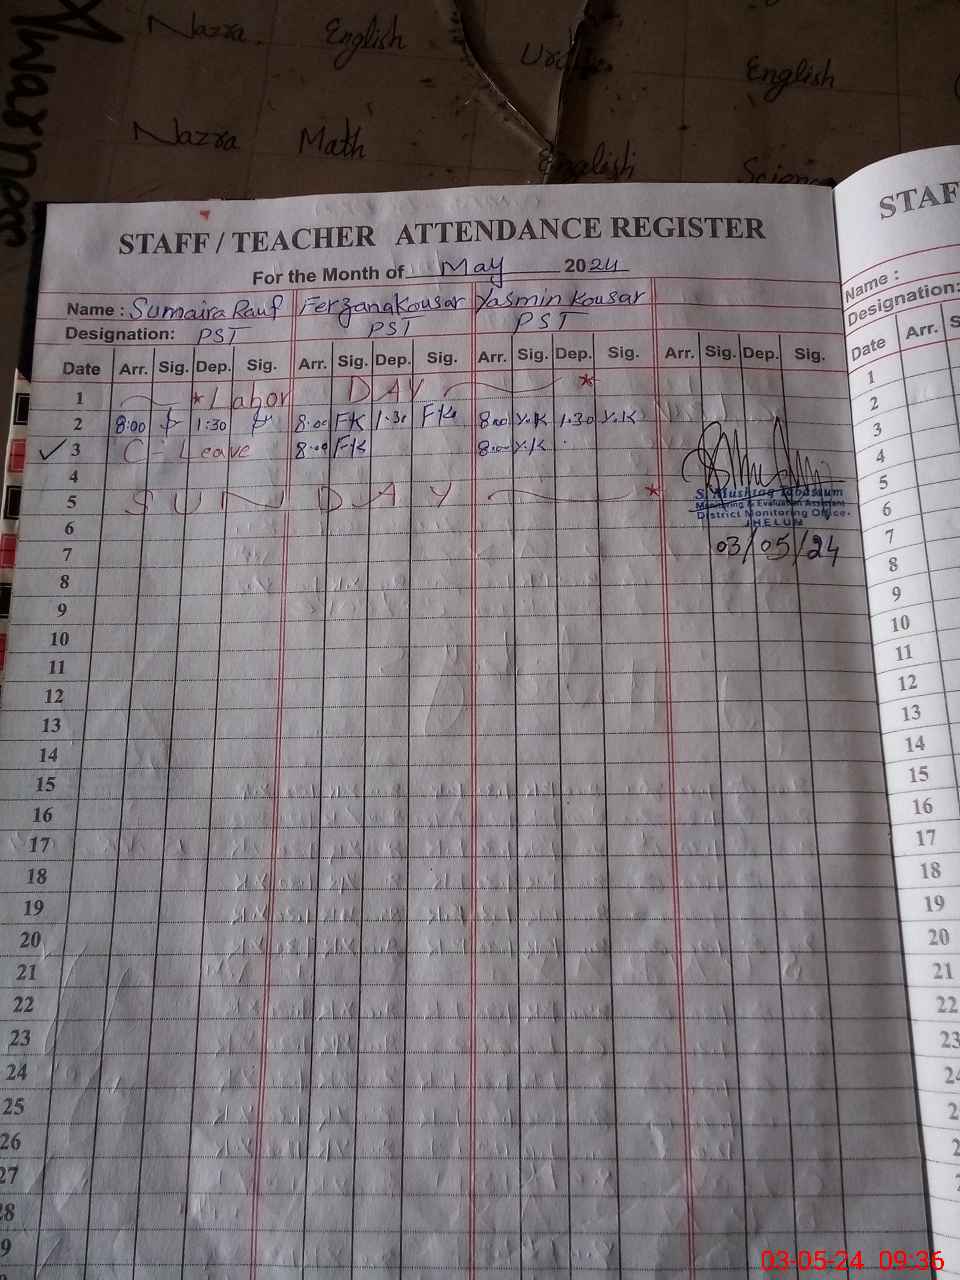 Nazra English English
Nazra Math English Science
Awarness
STAFF / TEACHER ATTENDANCE REGISTER
For the Month of May 2024
Name : Sumaira Rauf Ferzana Kousar Yasmin Kousar
Designation: PST PST PST
Date Arr. Sig. Dep. Sig. Arr. Sig. Dep. Sig. Arr. Sig. Dep. Sig. Arr. Sig. Dep. Sig.
1 * Labor DAY *
2 8:00 1:30 8:00 FK 1:30 FK 8:00 Y.K 1:30 Y.K
✓ 3 C - Leave 8:00 FK 8:00 Y.K
4
5 SUNDAY *
Monitoring & Evaluation Assistant
District Monitoring Office.
JHELUM
03/05/24
6
7
8
9
10
11
12
13
14
15
16
17
18
19
20
21
22
23
24
25
26
27
28
9
STAF
Name :
Designation:
Date Arr. S
1
2
3
4
5
6
7
8
9
10
11
12
13
14
15
16
17
18
19
20
21
22
23
24
2
2
2
03-05-24 09:36